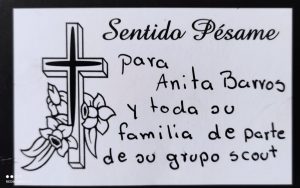 Sentido Pésame
para
Anita Barros
y toda su
familia de parte
de su grupo scout